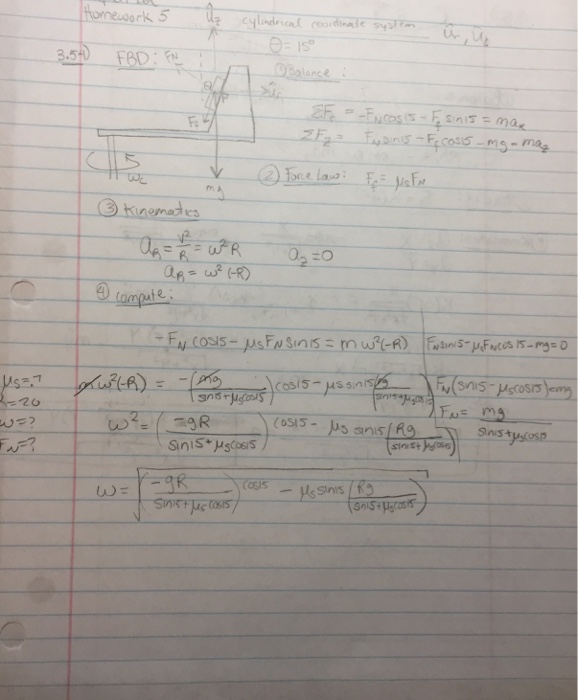 Homework 5
û_z cylindrical coordinate system û_r, û_z
θ = 15°
3.54) FBD: F_N
① Balance:
θ
ΣF_r = -F_N cos15 - F_f sin15 = ma_r
ΣF_z = F_N sin15 - F_f cos15 - mg = ma_z
F_f
ω_c
mg
② Force Law: F_f = μ_s F_N
③ Kinematics
a_R = v²/R = ω²R a_z = 0
a_R = ω²(-R)
④ compute:
-F_N cos15 - μ_s F_N sin15 = mω²(-R) F_N sin15 - μ_s F_N cos15 - mg = 0
μ_s = .7 mω²(-R) = -(mg / sin15 + μ_s cos15) cos15 - μ_s sin15 (mg / sin15 + μ_s cos15) F_N (sin15 - μ_s cos15) = mg
R = 20
ω = ? ω² = (-gR / sin15 + μ_s cos15) cos15 - μ_s sin15 (Rg / (sin15 + μ_s cos15)) F_N = mg / sin15 + μ_s cos15
F_N = ?
ω = √((-gR / sin15 + μ_s cos15) cos15 - μ_s sin15 (Rg / sin15 + μ_s cos15))